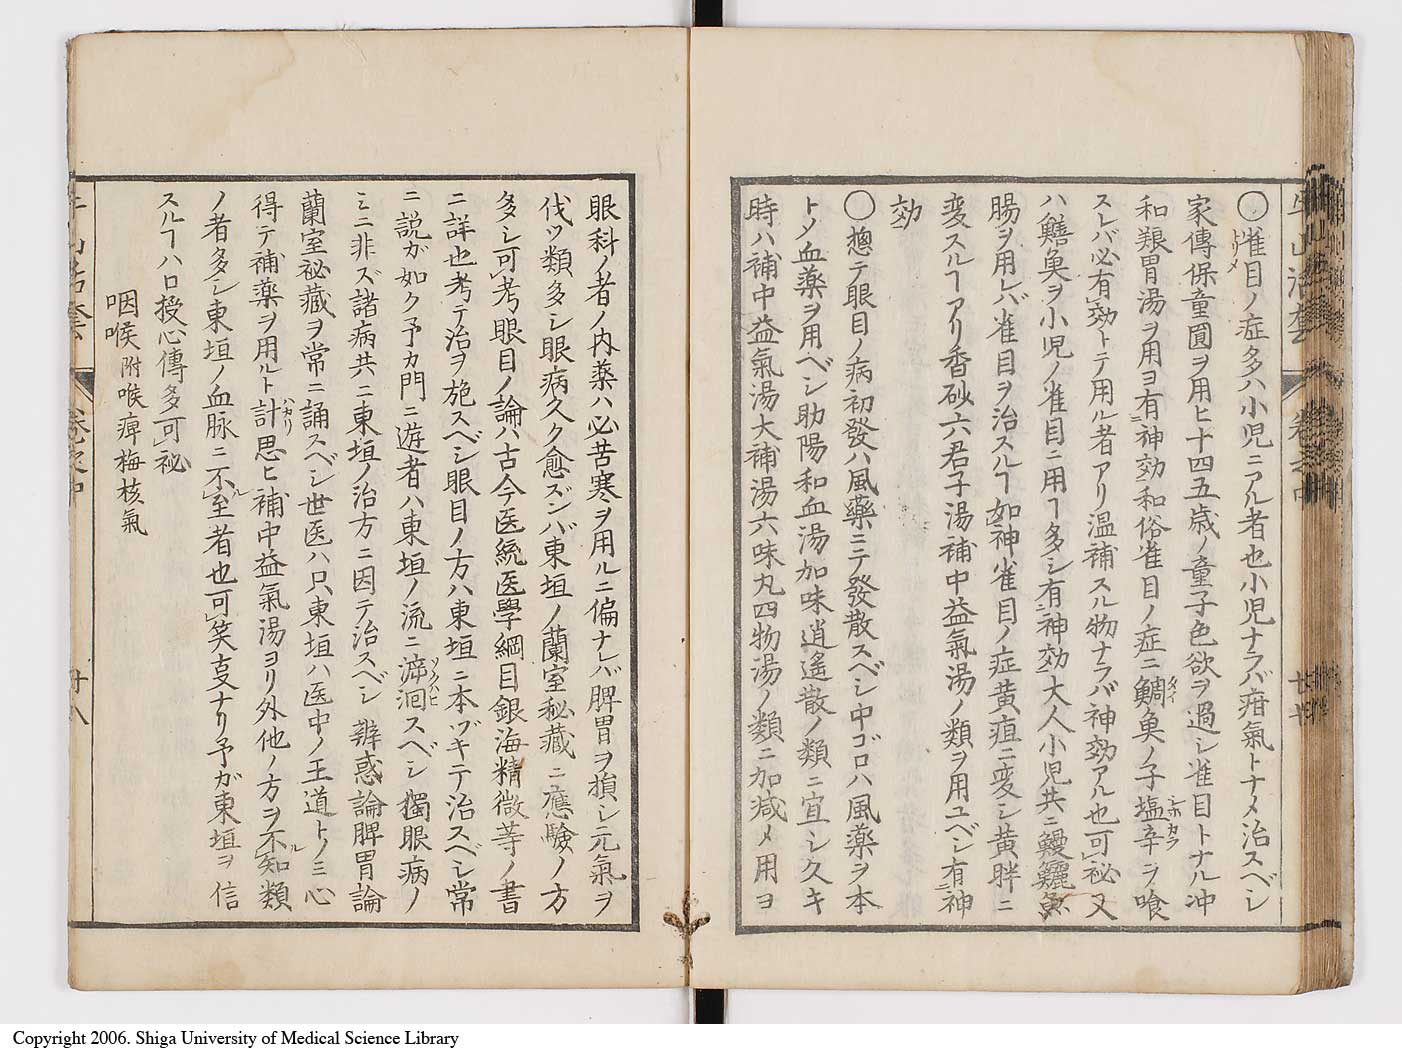 〇雀目ノ症多ハ小児ニアル者也小児ナラバ疳氣トナメ治スベシ
トリメ
家傳保童圓ヲ用ヒ十四五歳ノ童子色欲ヲ過シ雀目トナル冲
和艱胃湯ヲ用ヨ有神効和俗雀目ノ症ニ鯛魚ノ子塩辛ヲ喰
タイ
シホカラ
スレバ必有効トテ用ル者アリ温補スル物ナラバ神効アル也可秘又
ハ鱔魚ヲ小児ノ雀目ニ用ヿ多シ有神効大人小児共ニ鰻鱺魚
腸ヲ用レバ雀目ヲ治スルヿ如神雀目ノ症黄疸ニ変シ黄胖ニ
変スルヿアリ香砂六君子湯補中益氣湯ノ類ヲ用ユベシ有神
効
〇摠テ眼目ノ病初發ハ風藥ニテ發散スベシ中ゴロハ風薬ヲ本
トメ血薬ヲ用ベシ助陽和血湯加味逍遙散ノ類ニ宜シ久キ
時ハ補中益氣湯大補湯六味丸四物湯ノ類ニ加减メ用ヨ
牛山活套 卷之中 廿七
眼科ノ者ノ内薬ハ必苦寒ヲ用ルニ偏ナレバ脾胃ヲ損シ元氣ヲ
伐ツ類多シ眼病久ク愈ズンバ東垣ノ蘭室秘藏ニ應驗ノ方
多シ可考眼目ノ論ハ古今医統医學綱目銀海精微等ノ書
ニ詳也考テ治ヲ施スベシ眼目ノ方ハ東垣ニ本ヅキテ治スベシ常
ニ説ガ如ク予カ門ニ遊者ハ東垣ノ流ニ泝洄スベシ獨眼病ノ
ミニ非ズ諸病共ニ東垣ノ治方ニ因テ治スベシ 辨惑論脾胃論
蘭室祕藏ヲ常ニ誦スベシ世医ハ只東垣ハ医中ノ王道トノミ心
得テ補薬ヲ用ルト計思ヒ補中益氣湯ヨリ外他ノ方ヲ不知類
ハカリ
ル
ノ者多シ東垣ノ血脉ニ不至者也可笑支ナリ予ガ東垣ヲ信
ル
スルヿハ口授心傳多可祕
咽喉 附喉痺梅核氣
牛山活套 卷之中 廿八